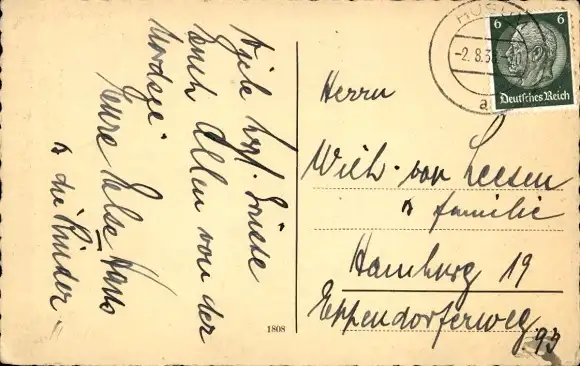 Viele herzl. Grüsse
Euch Allen von der
Nordsee
Eure Else Hans
u die Kinder
1808
-2.8.3
a
6 6
Deutsches Reich
Herrn
Wilh. von Leesen
u Familie
Hamburg 19
Eppendorferweg
93